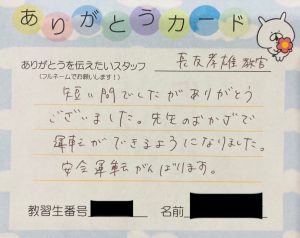 ありがとうカード
ありがとうを伝えたいスタッフ
(フルネームでお願いします!)
長友孝雄教官
短い間でしたがありがとう
ございました。先生のおかげで
運転ができるようになりました。
安全運転がんばります。
教習生番号
名前